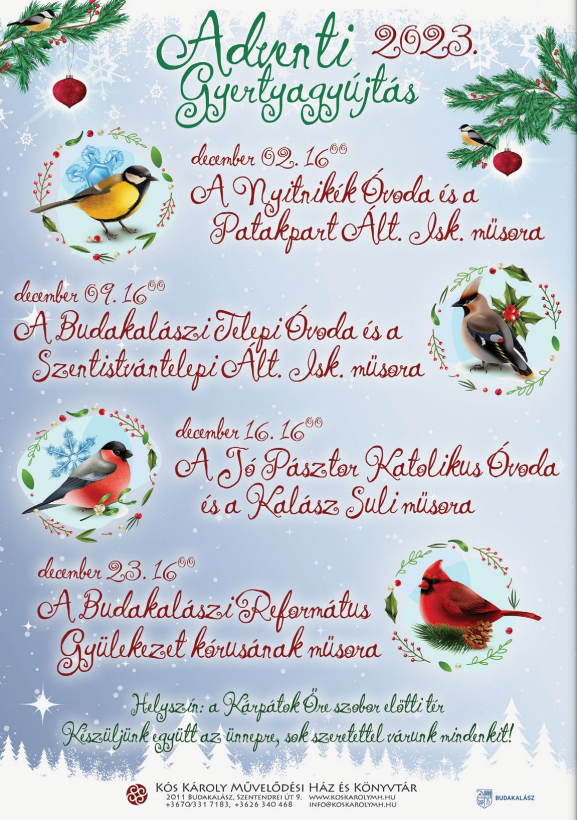 Adventi 2023.
Gyertyagyújtás
december 02. 16⁰⁰
A Nyitnikék Óvoda és a
Patakpart Ált. Isk. műsora
december 09. 16⁰⁰
A Budakalászi Telepi Óvoda és a
Szentistvántelepi Ált. Isk. műsora
december 16. 16⁰⁰
A Jó Pásztor Katolikus Óvoda
és a Kalász Suli műsora
december 23. 16⁰⁰
A Budakalászi Református
Gyülekezet kórusának műsora
Helyszín: a Kárpátok Őre szobor előtti tér
Készüljünk együtt az ünnepre, sok szeretettel várunk mindenkit!
Kós Károly Művelődési Ház és Könyvtár
2011 Budakalász, Szentendrei út 9. www.koskarolymh.hu
+3670/331 7183, +3626 340 468 info@koskarolymh.hu
BUDAKALÁSZ